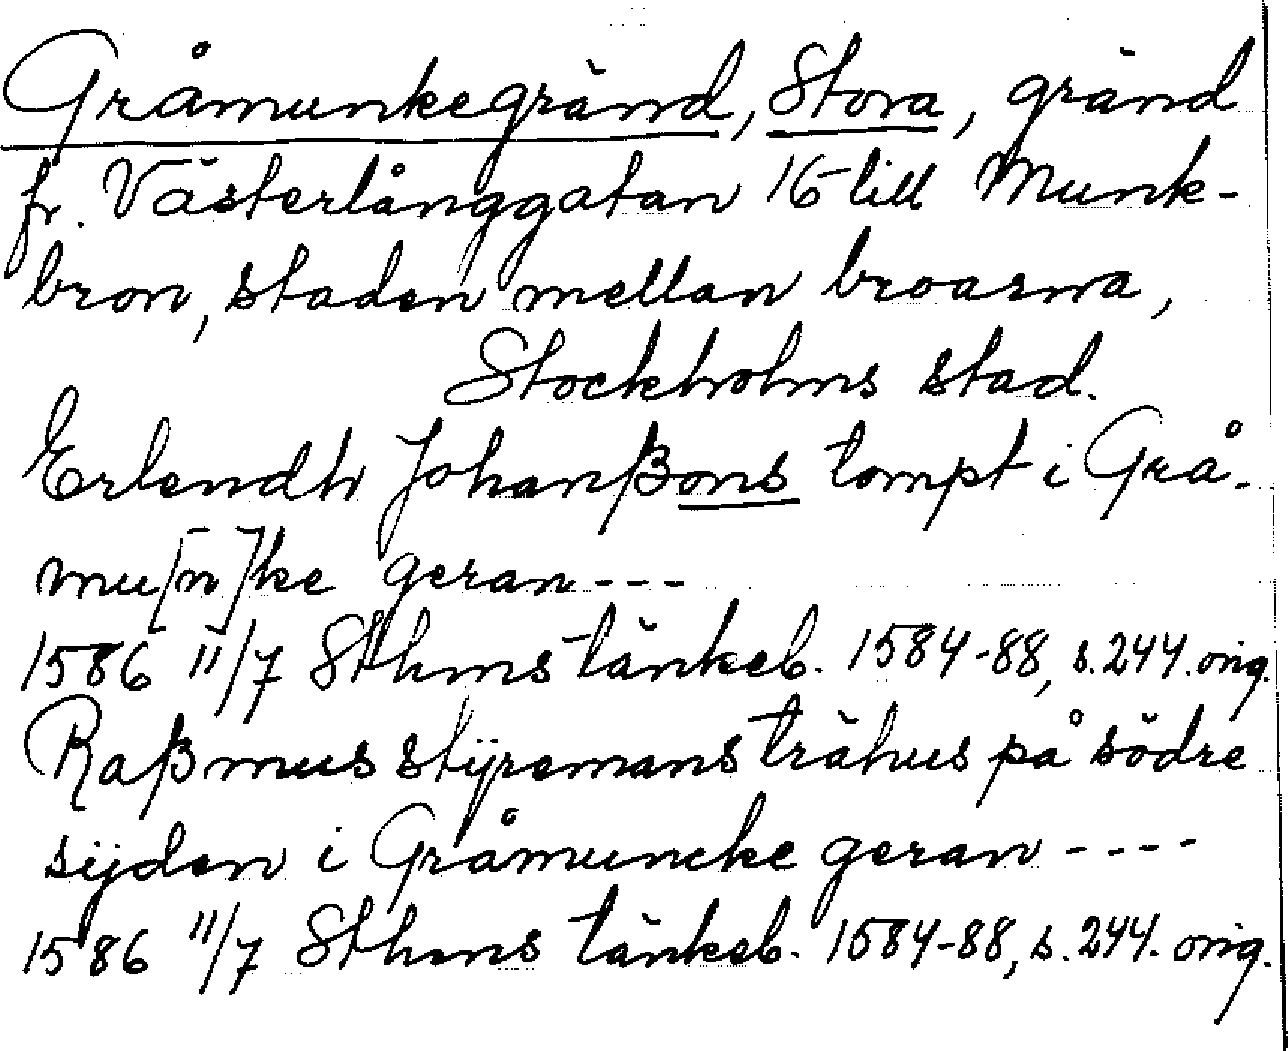 Gråmunkegränd, Stora, gränd
fr. Västerlånggatan 16 till Munk-
bron, staden mellan broarna,
Stockholms stad.
Erlendh Johanßons tompt i Grå-
mu[n]ke geran---
1586 11/7 Sthms tänkeb. 1584-88, s. 244. orig.
Raßmus stÿremans trähus på södre
sijden i Gråmuncke geran----
1586 11/7 Sthms tänkeb. 1584-88, s. 244. orig.